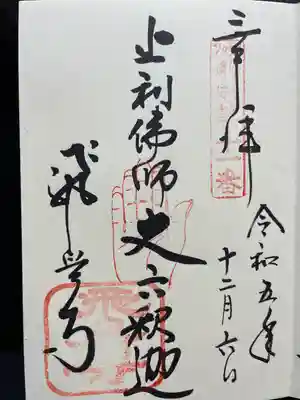 奉拝
令和五年
十二月六日
止利佛師丈六釈迦
飛鳥寺